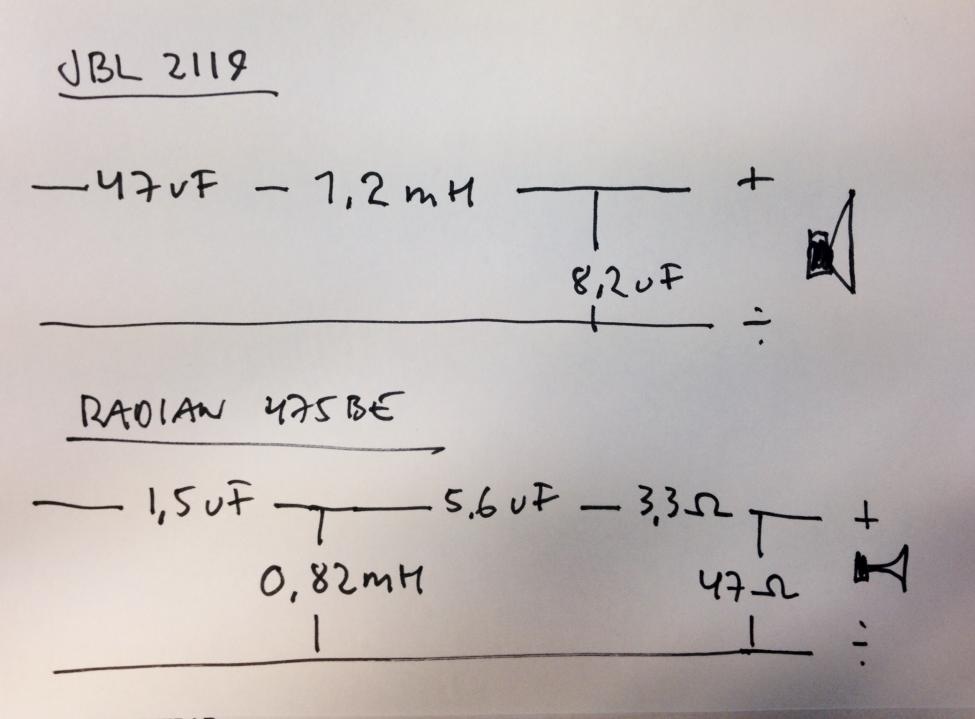 JBL 2119
47uF 1,2mH +
8,2uF
÷
RADIAN 475BE
1,5uF 5,6uF 3,3Ω +
0,82mH 47Ω
÷